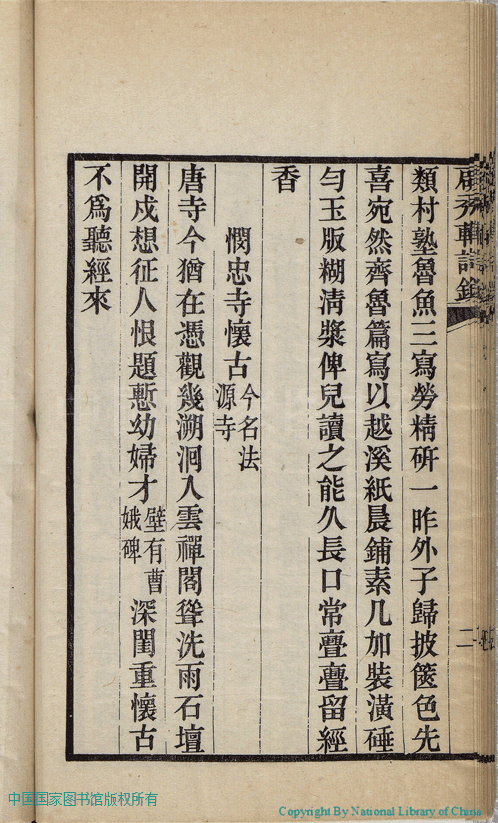 類村塾魯魚三寫勞精硏一昨外子歸披篋色先
喜宛然齊魯篇寫以越溪紙晨鋪素几加裝潢硾
勻玉版糊清漿俾兒讀之能久長口常亹亹留經
香
憫忠寺懷古今名法源寺
唐寺今猶在憑觀幾溯洄入雲禪閣聳洗雨石壇
開戍想征人恨題慙幼婦才壁有曹娥碑深閨重懷古
不爲聽經來
二
中国国家图书馆版权所有
Copyright By National Library of China